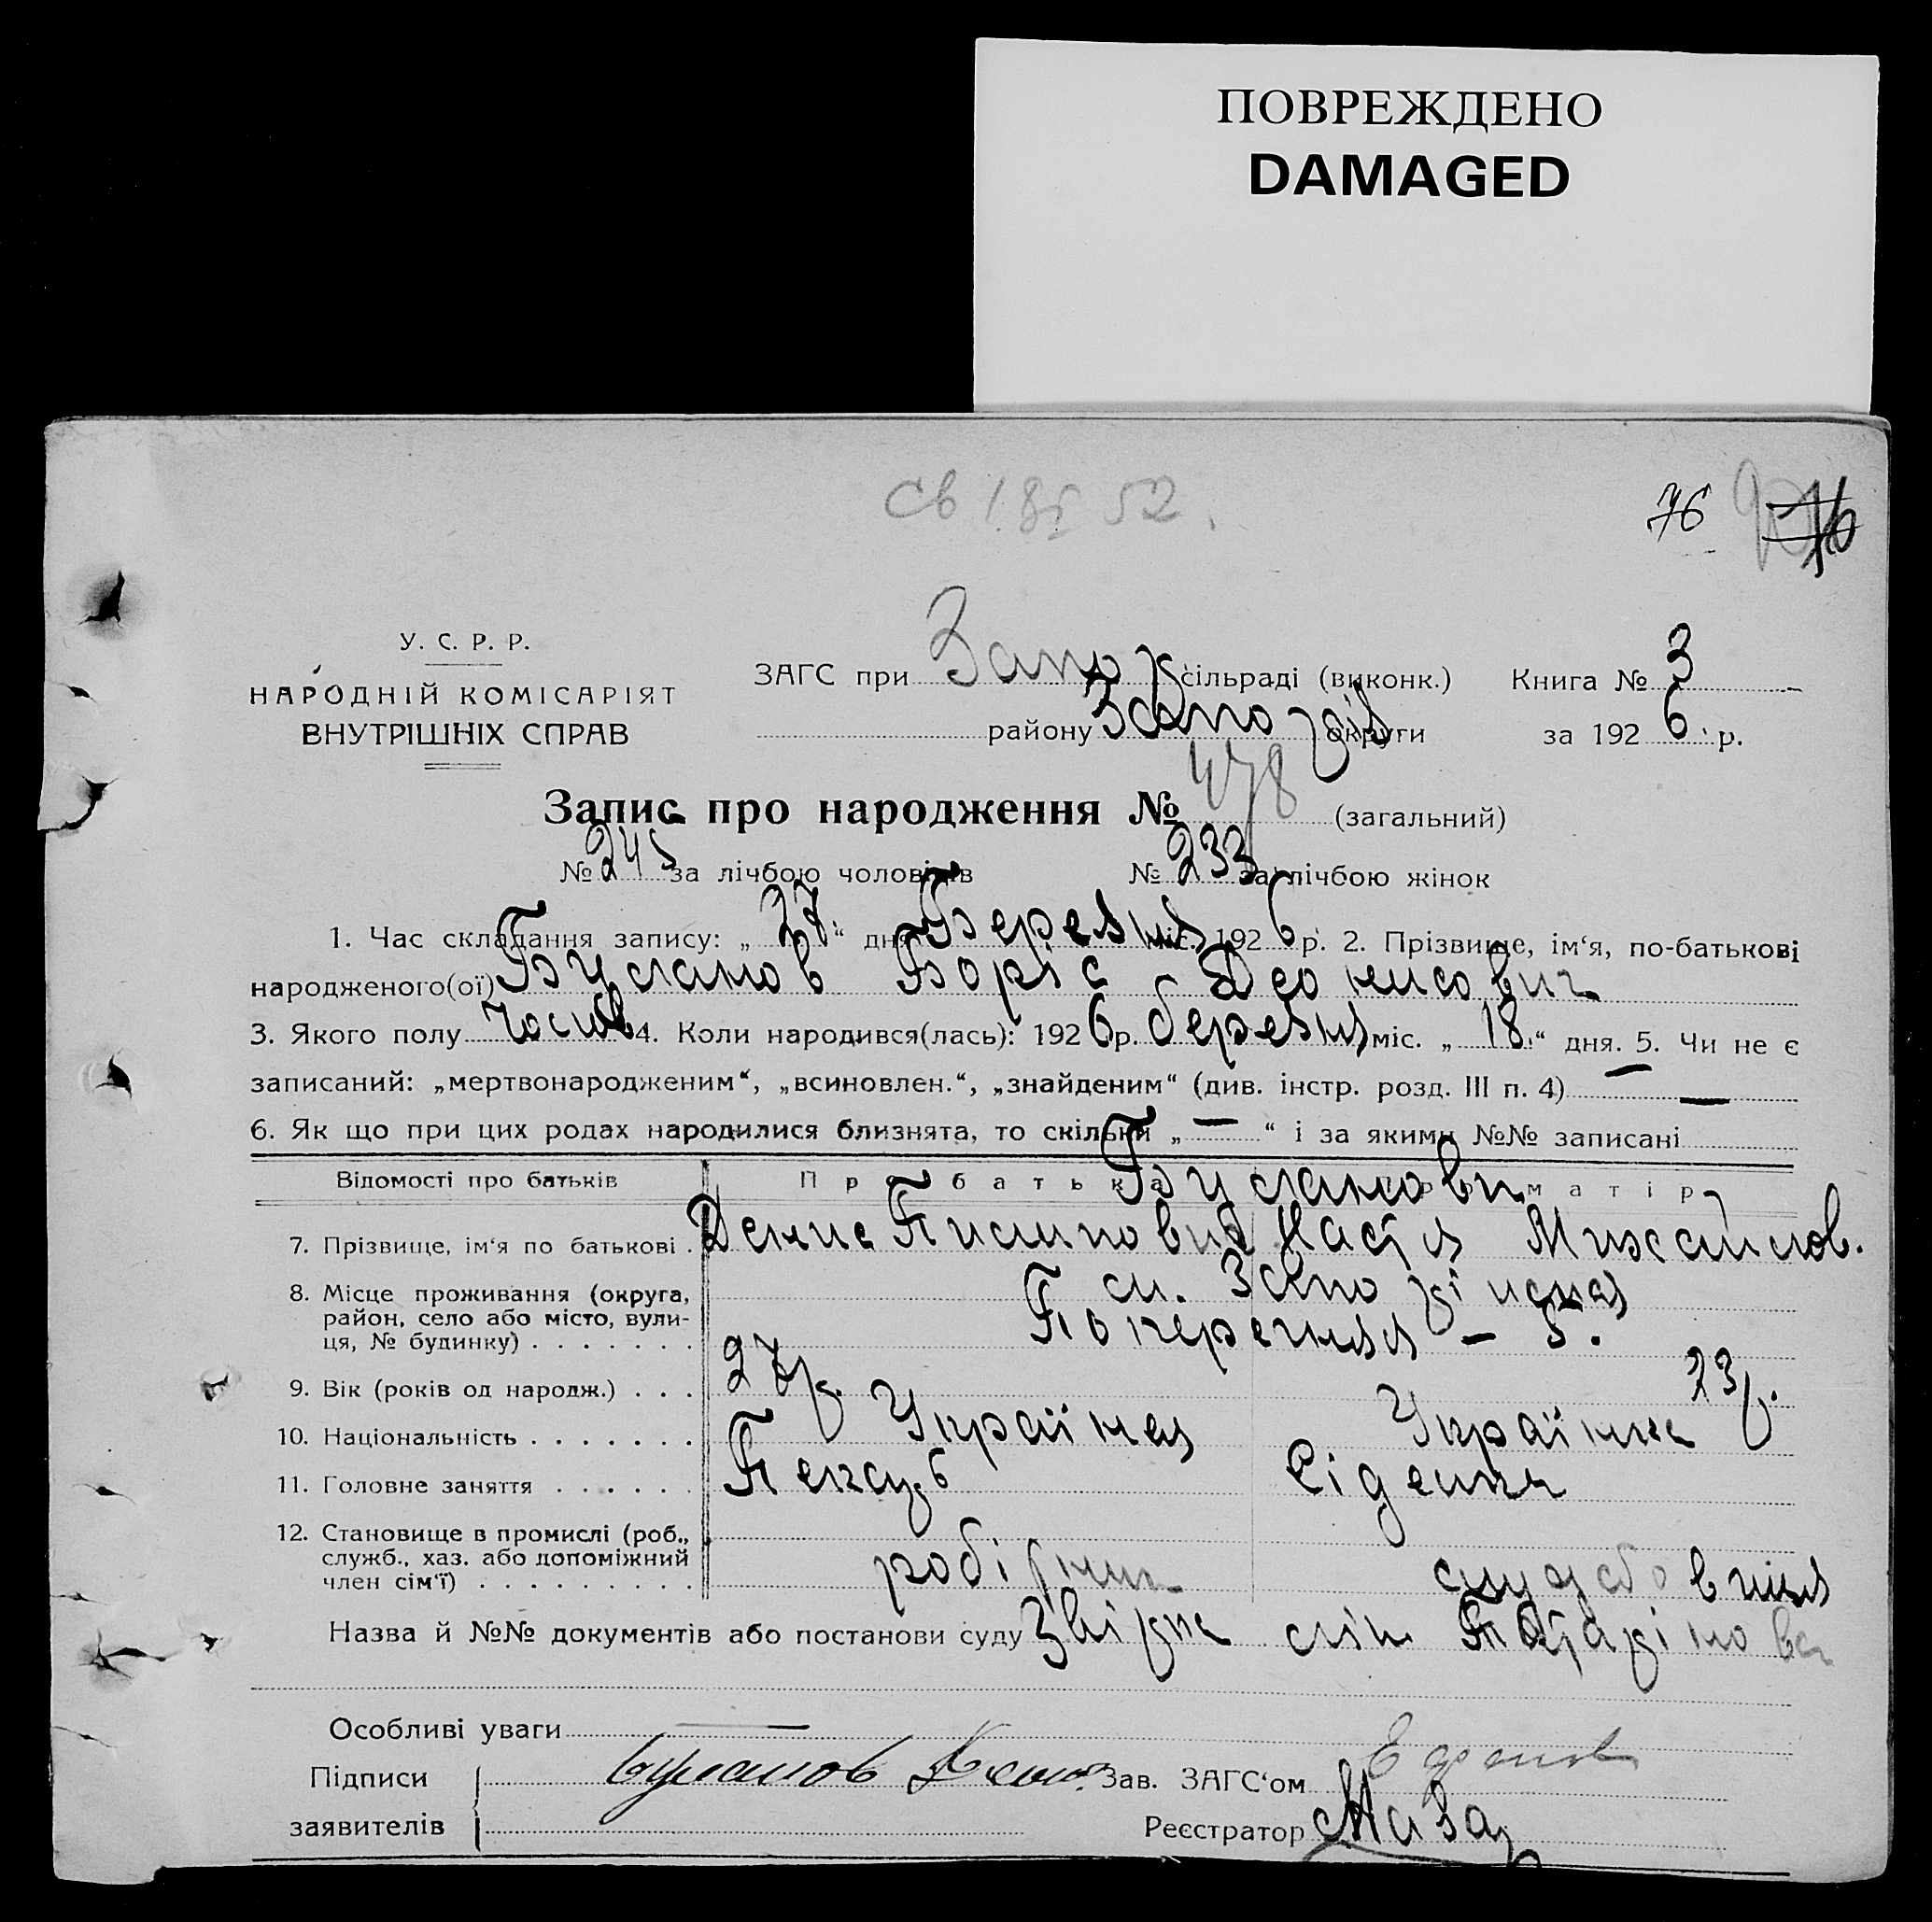 ПОВРЕЖДЕНО
DAMAGED
Св 52.
76 76
У. С. Р. Р.
НАРОДНІЙ КОМІСАРІЯТ
ВНУТРІШНІХ СПРАВ
ЗАГС при Запор сільраді (виконк.) Книга № 3
району Запоріз округи за 1926 р.
Запис про народження № 478 (загальний)
№ 245 за лічбою чоловіків № 233 за лічбою жінок
1. Час складання запису: „27“ дня Березня міс. 1926 р. 2. Прізвище, ім‘я, по-батькові
народженого(ої) Бусланов Боріс Деонисович
3. Якого полу Чолов 4. Коли народився(лась): 1926 р. березня міс. „18“ дня. 5. Чи не є
записаний: „мертвонародженим“, „всиновлен.“, „знайденим“ (див. інстр. розд. III п. 4) —
6. Як що при цих родах народилися близнята, то скільки „—“ і за якими №№ записані
Відомості про батьків Про батька Про матір
Буслановы
7. Прізвище, ім‘я по батькові . Денис Пилипович Настя Михайлов.
8. Місце проживання (округа, район, село або місто, вулиця, № будинку) . . . . . . . м. Запоріжжя
Поперечняя – 5.
9. Вік (років од народж.) . . . 27 р. 23 р.
10. Національність . . . . . . . Українец Українка
11. Головне заняття . . . . . . Пекарь Сіделка
12. Становище в промислі (роб., служб., хаз. або допоміжний член сім‘ї) . . . . . . . . . робітник
Назва й №№ документів або постанови суду
Особливі уваги —
Підписи заявителів Бусланов Денис Зав. ЗАГС‘ом
Реєстратор